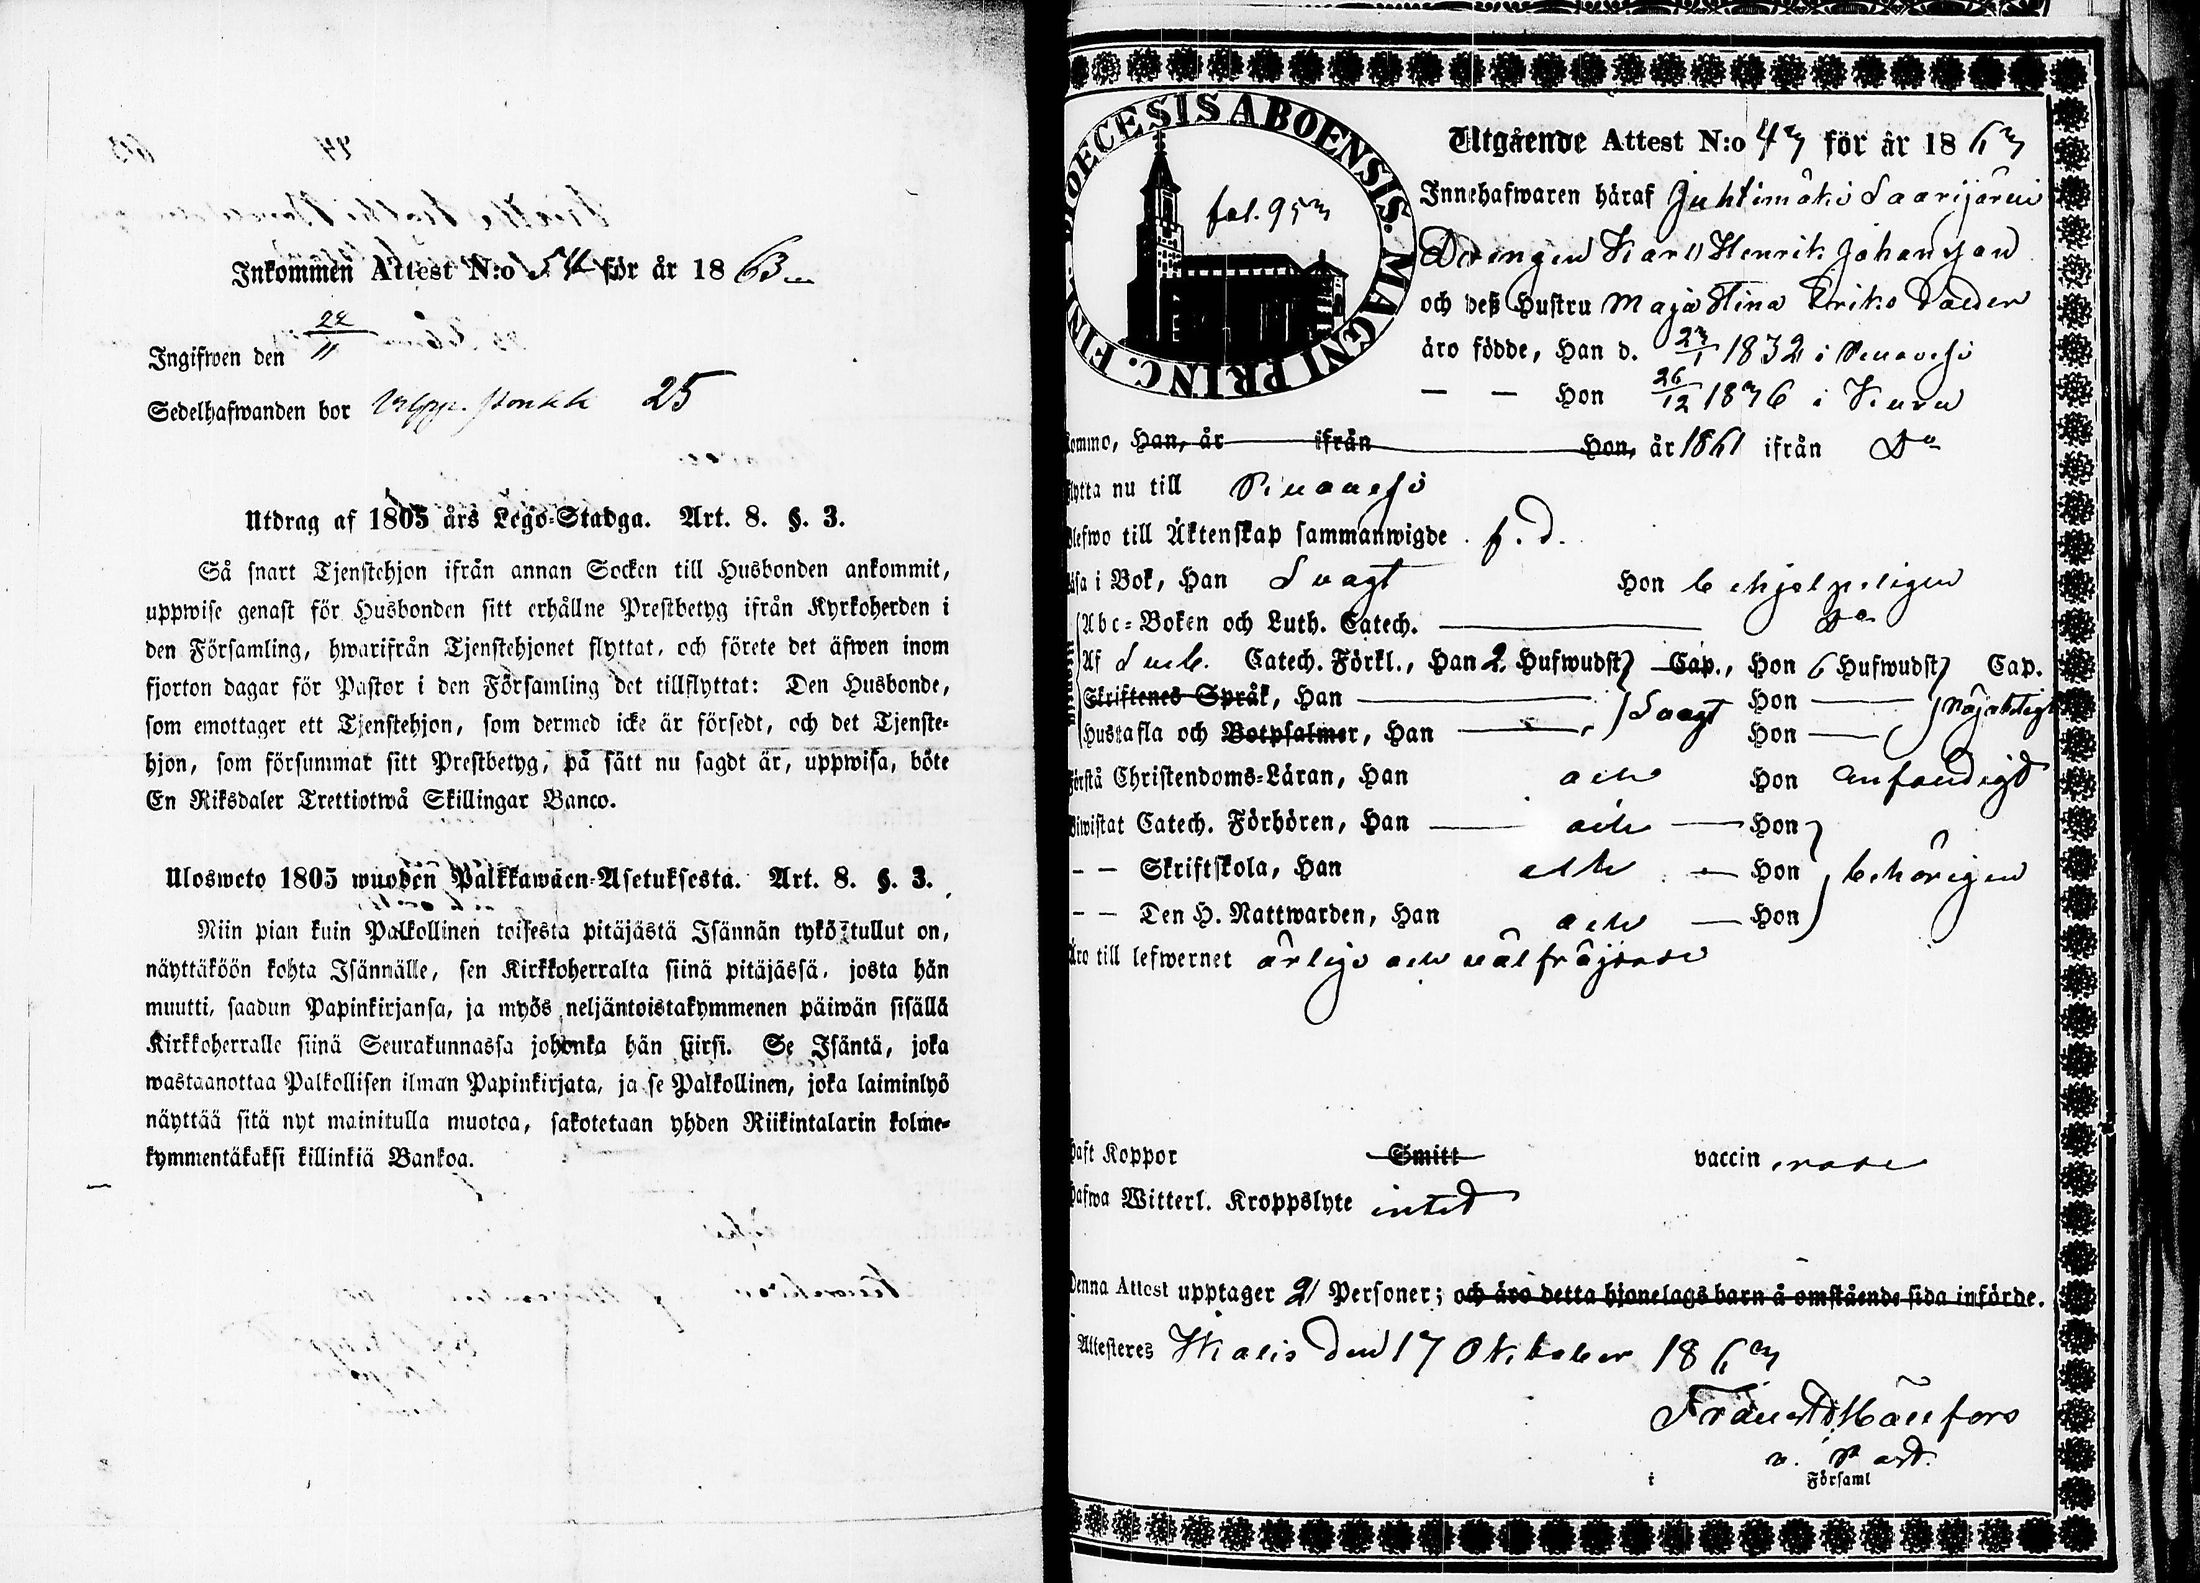 Inkommen Attest N:o 54 för år 1863
Ingifwen den 22/11
Sedelhafwanden bor 25
Utdrag af 1805 års Lego-Stadga. Art. 8. §. 3.
Så snart Tjenstehjon ifrån annan Socken till Husbonden ankommit,
uppwise genast för Husbonden sitt erhållne Prestbetyg ifrån Kyrkoherden i
den Församling, hwarifrån Tjenstehjonet flyttat, och förete det äfwen inom
fjorton dagar för Pastor i den Församling det tillflyttat: Den Husbonde,
som emottager ett Tjenstehjon, som dermed icke är försedt, och det Tjenste-
hjon, som försummar sitt Prestbetyg, på sätt nu sagdt är, uppwisa, böte
En Riksdaler Trettiotwå Skillingar Banco.
Ulosweto 1805 wuoden Palkkawäen-Asetuksesta. Art. 8. §. 3.
Niin pian kuin Palkollinen toisesta pitäjästä Isännän tykö tullut on,
näyttäköön kohta Isännälle, sen Kirkkoherralta siinä pitäjässä, josta hän
muutti, saadun Papinkirjansa, ja myös neljäntoistakymmenen päiwän sisällä
Kirkkoherralle siinä Seurakunnassa johonka hän siirsi. Se Isäntä, joka
wastaanottaa Palkollisen ilman Papinkirjata, ja se Palkollinen, joka laiminlyö
näyttää sitä nyt mainitulla muotoa, sakotetaan yhden Riikintalarin kolme-
kymmentäkaksi killinkiä Bankoa.
DIOECESIS ABOENSIS. MAGNI PRINC. FINL.
fol. 953
Utgående Attest N:o 43 för år 1863
Innehafwaren häraf Juhtimäki Saarijärvi
Drängen Karl Henrik Johansson
och deß Hustru Maja Stina Eriks Doter
äro födde, Han d. 23/1 1832 i Ruovesi
— — Hon 26/12 1836 i Kuru
Kommo, Han, år ifrån Hon, år 1861 ifrån Do
flytta nu till Ruovesi
blefwo till Äktenskap sammanwigde f. d.
läsa i Bok, Han Svagt Hon behjelpeligen
Abc-Boken och Luth. Catech. Do
Af Sveb. Catech. Förkl., Han 2 Hufwudst Cap., Hon 6 Hufwudst Cap.
Skriftenes Språk, Han Svagt Hon nöjaktigt
Hustafla och Botpsalmer, Han Hon
Förstå Christendoms-Läran, Han och Hon enfaldigt
Biwistat Catech. Förhören, Han och Hon
— — Skriftskola, Han och Hon behörigen
— — Den H. Nattwarden, Han och Hon
Äro till lefwernet ärliga och välfräjdade
Haft Koppor Smitt vaccin erade
Hafwa Witterl. Kroppslyte intet
Denna Attest upptager 2 Personer; och äro detta hjonelags barn å omstående sida införde.
Attesteres den 17 Oktober 1863
v. Past.
i Församl